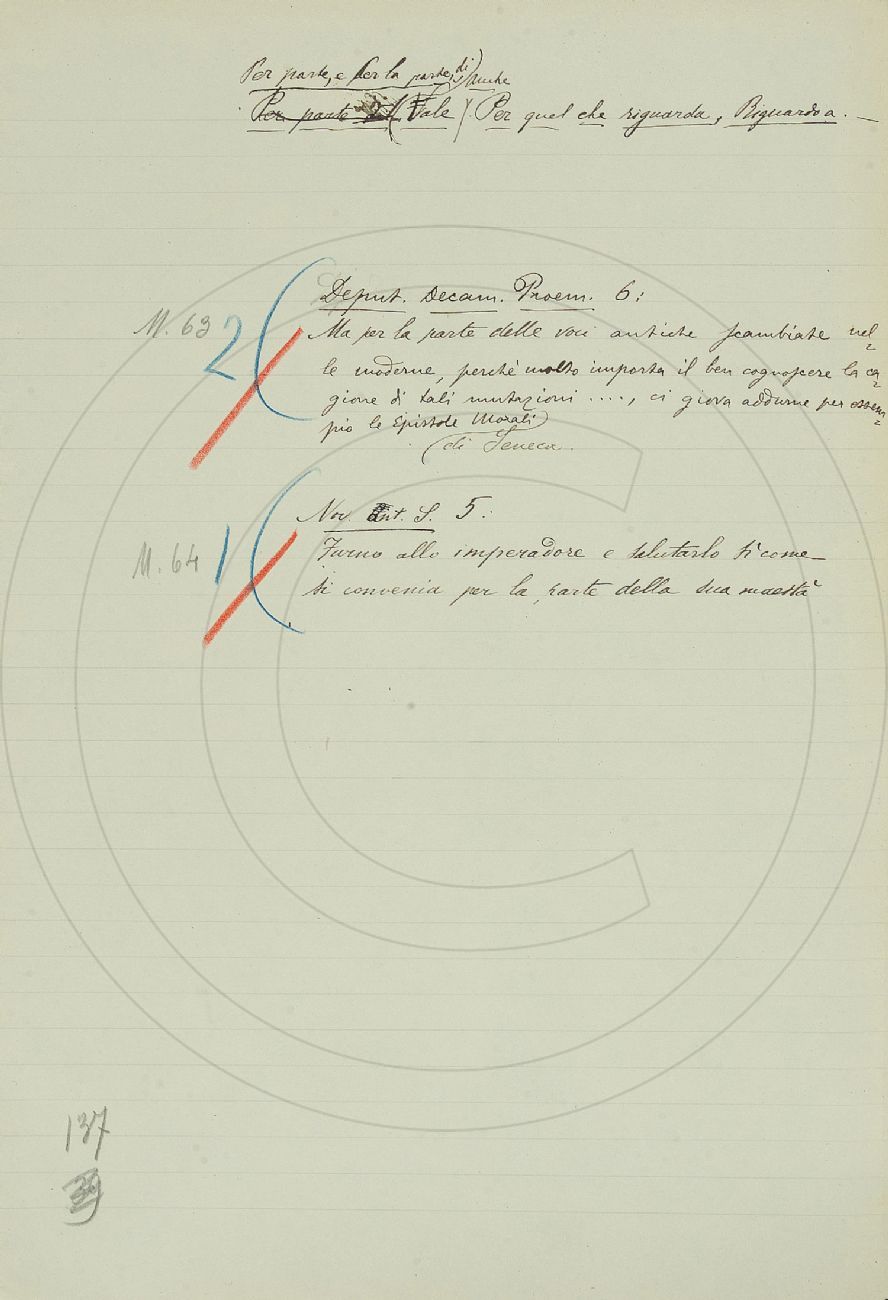 Per parte, e Per la parte, di, anche
Per parte del Vale Per quel che riguarda, Riguardo a. —
Deput. Decam. Proem. 6:
M. 63 2 Ma per la parte delle voci antiche scambiate nel=
le moderne, perchè molto importa il ben cognoscere la ca=
gione di tali mutazioni ...., ci giova addurne per essem=
pio le Epistole Morali
(di Seneca.
Nov. Ant. S. 5:
M. 64 1 Furno allo imperadore e salutarlo sì come
si convenia per la parte della sua maestà
137